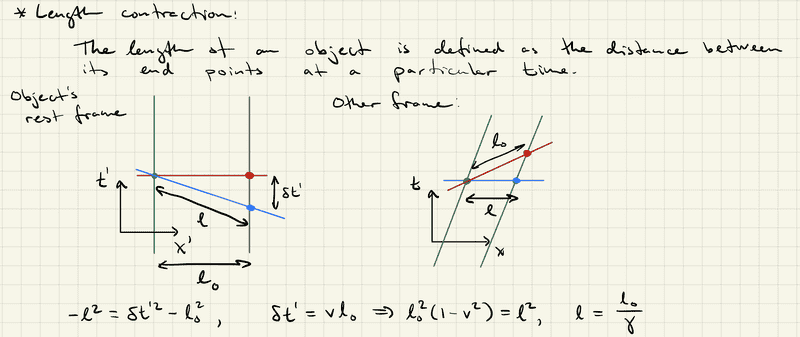 * Length contraction:
The length of an object is defined as the distance between
its end points at a particular time.
Object's
rest frame
Other frame:
t'
δt'
l
x'
l₀
l₀
t
l
x
-l² = δt'² - l₀², δt' = vl₀ ⇒ l₀²(1-v²) = l², l = l₀/γ